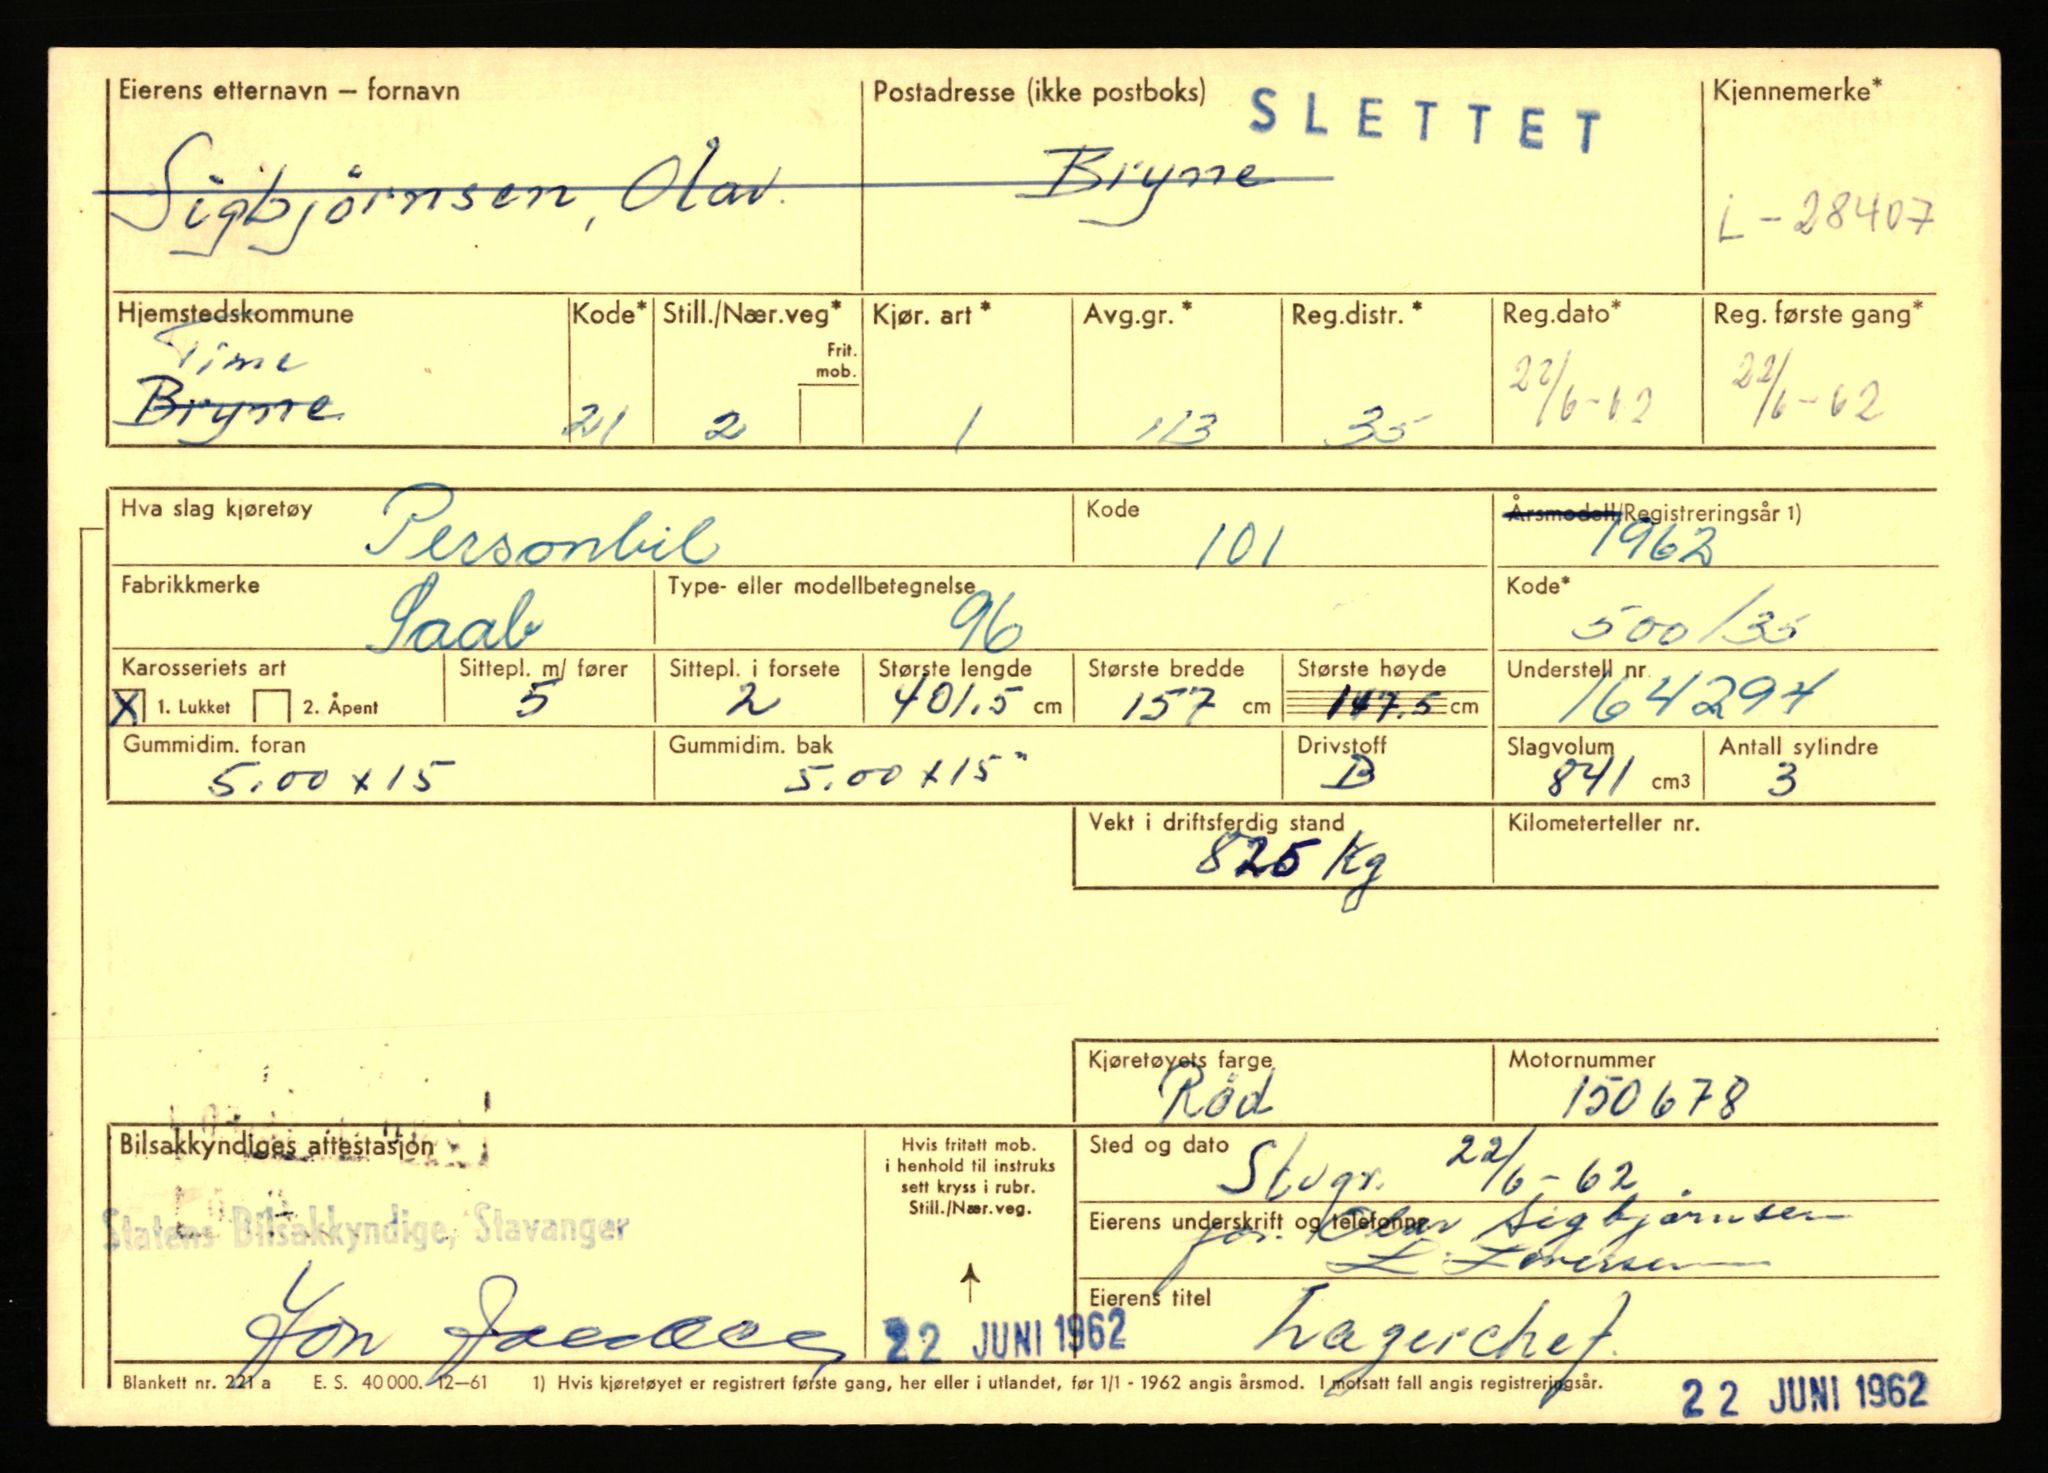 Eierens etternavn – fornavn
Postadresse (ikke postboks)
SLETTET
Kjennemerke*
Sigbjørnsen, Olav.
Bryne
L-28407
Hjemstedskommune
Kode*
Still./Nær.veg*
Kjør. art*
Avg.gr.*
Reg.distr.*
Reg.dato*
Reg. første gang*
Frit. mob.
Time
Bryne
21
2
1
113
35
22/6-62
22/6-62
Hva slag kjøretøy
Personbil
Kode
101
Årsmodell/Registreringsår 1)
1962
Fabrikkmerke
Saab
Type- eller modellbetegnelse
96
Kode*
500/35
Karosseriets art
Sittepl. m/ fører
Sittepl. i forsete
Største lengde
Største bredde
Største høyde
Understell nr.
X 1. Lukket 2. Åpent
5
2
401.5 cm
157 cm
147.5 cm
164294
Gummidim. foran
Gummidim. bak
Drivstoff
Slagvolum
Antall sylindre
5.00 x 15
5.00 x 15"
B
841 cm3
3
Vekt i driftsferdig stand
Kilometerteller nr.
825 Kg
Kjøretøyets farge
Motornummer
Rød
150678
Bilsakkyndiges attestasjon
Hvis fritatt mob.
i henhold til instruks
sett kryss i rubr.
Still./Nær.veg.
Sted og dato
Stvgr. 22/6-62
Statens Bilsakkyndige, Stavanger
Eierens underskrift og telefonnr.
for. Olav Sigbjørnsen
Jon
Eierens titel
Lagerchef.
22 JUNI 1962
Blankett nr. 221 a E. S. 40 000. 12–61 1) Hvis kjøretøyet er registrert første gang, her eller i utlandet, før 1/1 - 1962 angis årsmod. I motsatt fall angis registreringsår.
22 JUNI 1962